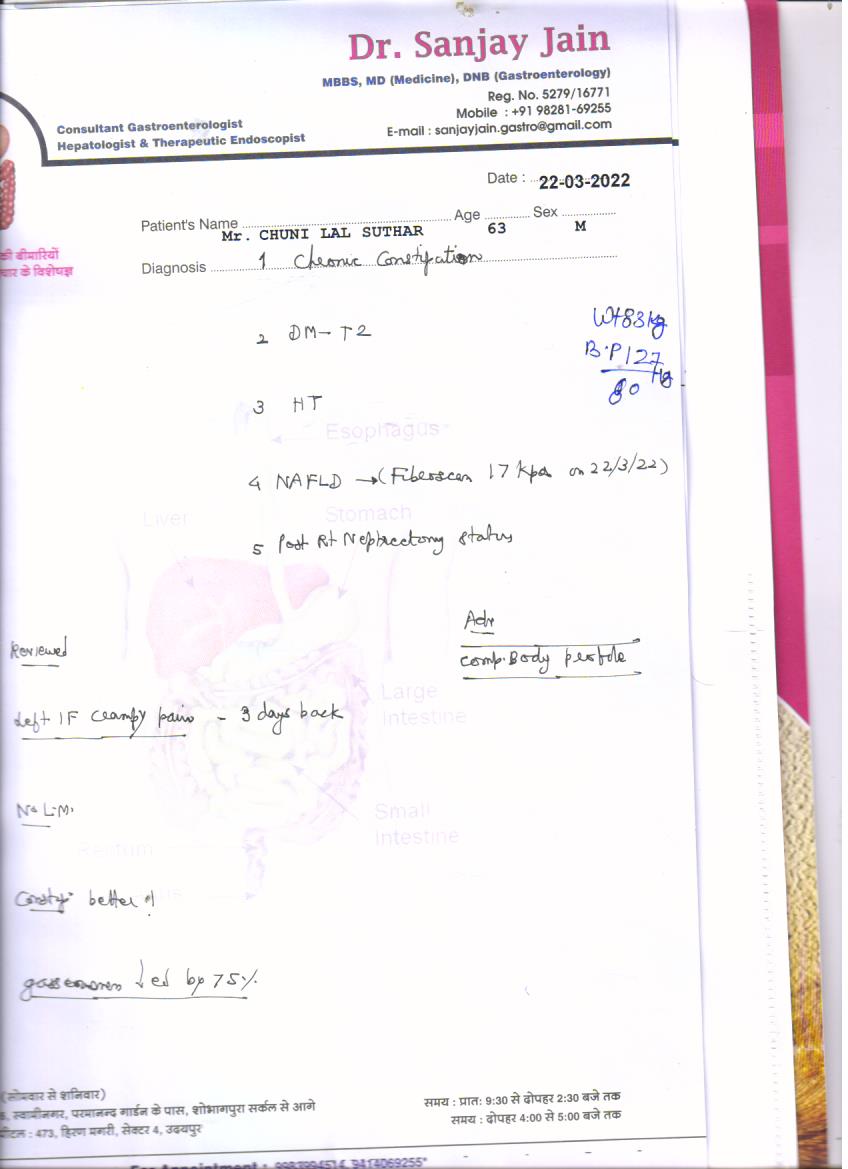 Dr. Sanjay Jain
MBBS, MD (Medicine), DNB (Gastroenterology)
Reg. No. 5279/16771
Mobile : +91 98281-69255
E-mail : sanjayjain.gastro@gmail.com
Consultant Gastroenterologist
Hepatologist & Therapeutic Endoscopist
Date : 22-03-2022
Patient's Name Mr. CHUNI LAL SUTHAR Age 63 Sex M
की बीमारियों
चार के विशेषज्ञ
Diagnosis 1 Chronic Constipation
2 DM-T2
Wt 83 kg
B.P 127
80 Hg
3 HT
Esophagus
4 NAFLD →(Fiberoscan 17 kpa on 22/3/22)
Liver
Stomach
5 Post Rt Nephrectomy status
Adv
Reviewed
Comp. Body
Large
Intestine
Left IF crampy pain - 3 days back
No L.M.
Small
Intestine
Rectum
Constip better
↓ed by 75%
(सोमवार से शनिवार)
स्वामीनगर, परमानन्द गार्डन के पास, शोभागपुरा सर्कल से आगे
473, हिरण मगरी, सेक्टर 4, उदयपुर
समय : प्रातः 9:30 से दोपहर 2:30 बजे तक
समय : दोपहर 4:00 से 5:00 बजे तक
For Appointment : 9414069255